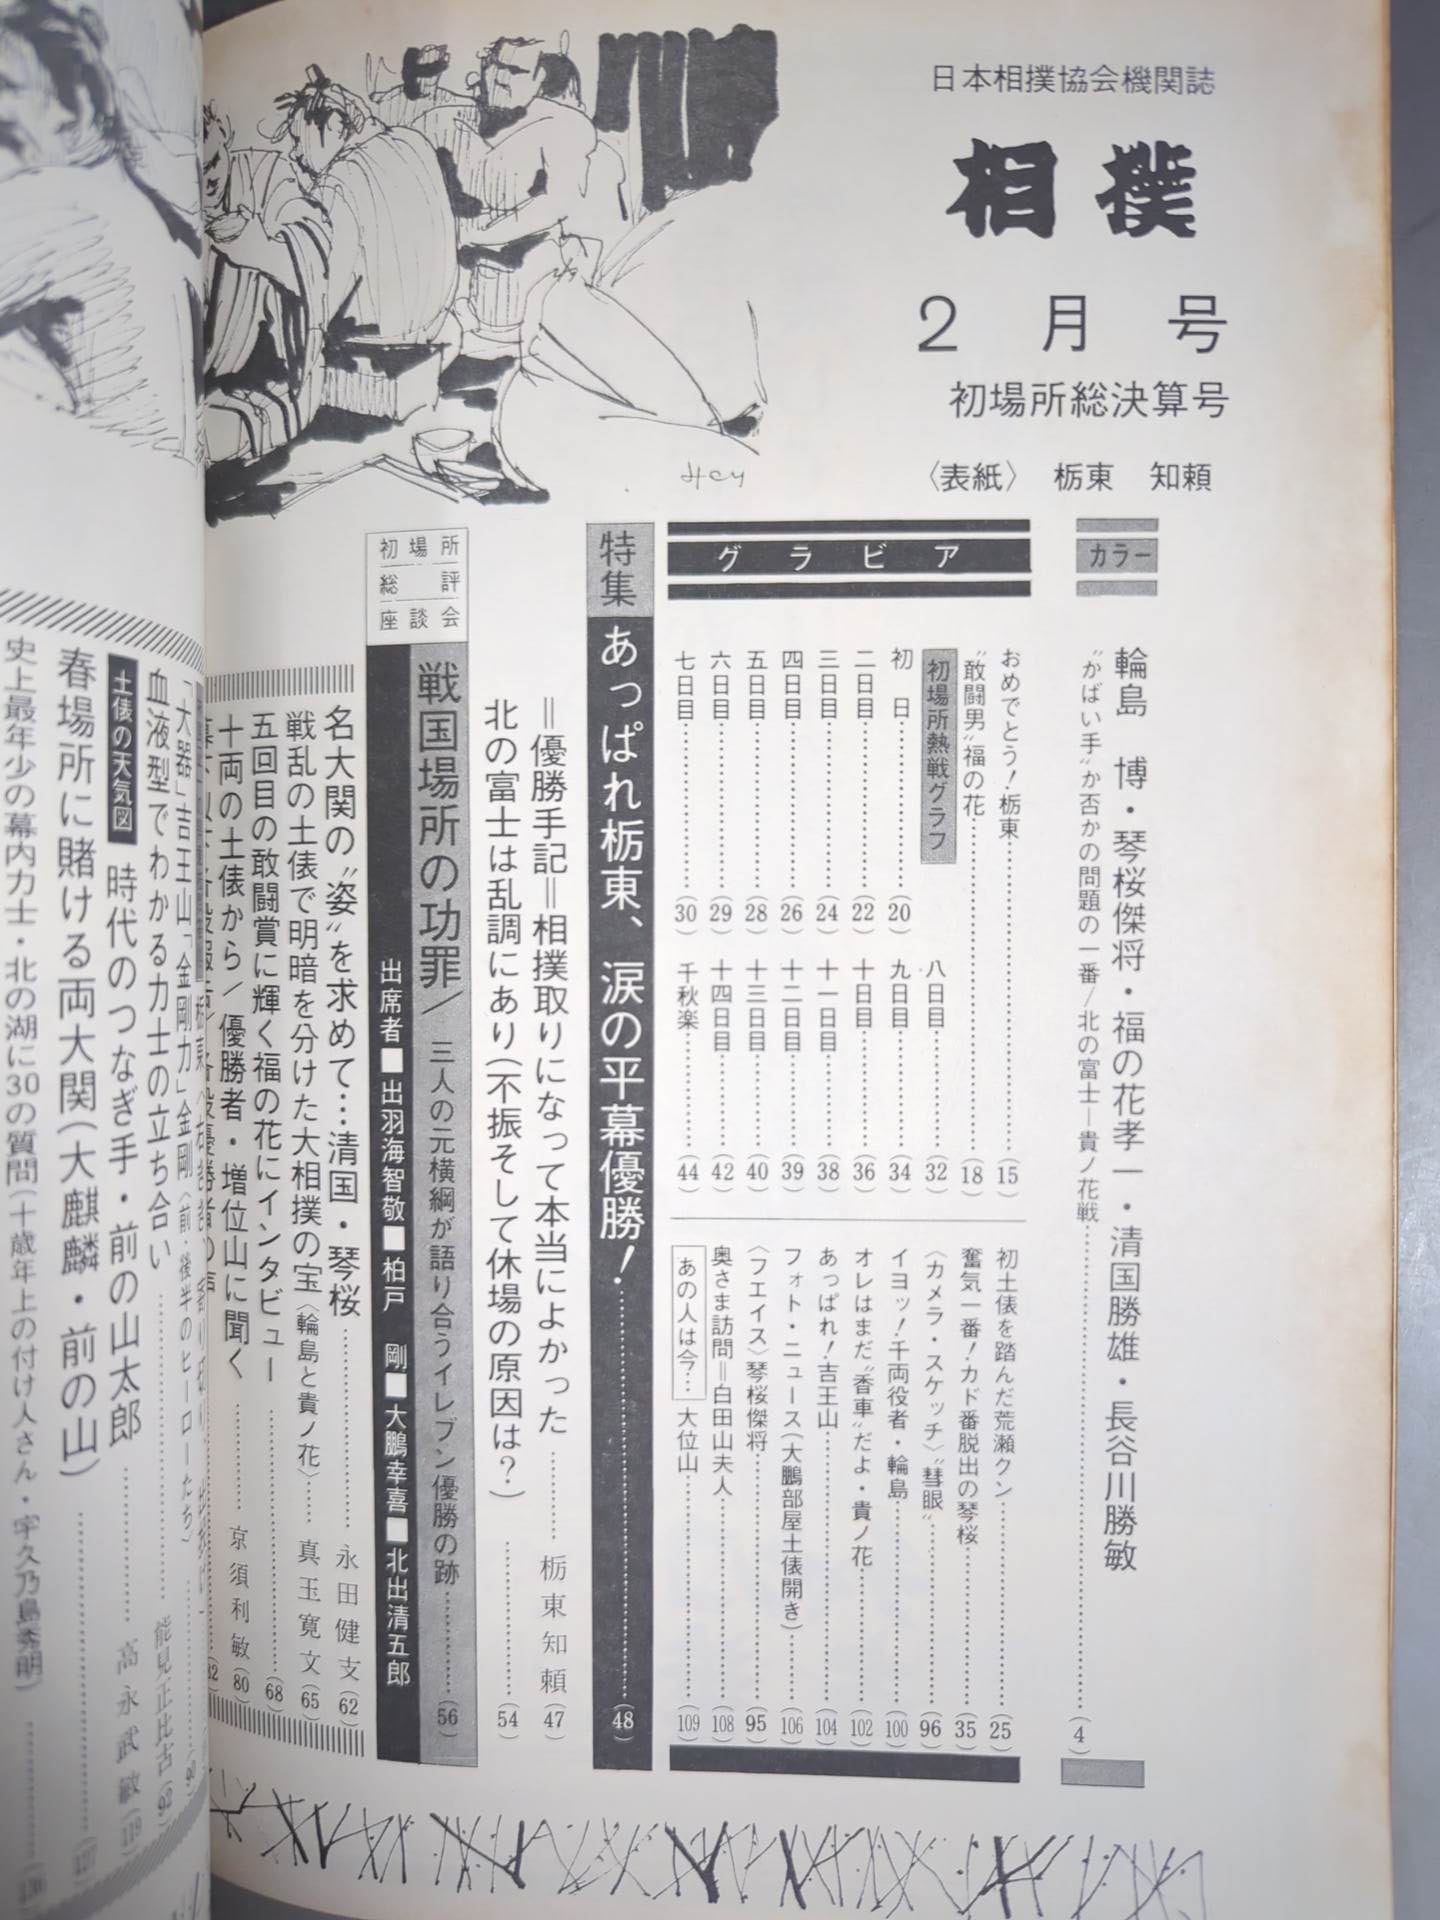 日本相撲協会機関誌
相撲
2月号
初場所総決算号
〈表紙〉 栃東 知頼
カラー
輪島 博・琴桜傑将・福の花孝一・清国勝雄・長谷川勝敏
"かばい手"か否かの問題の一番/北の富士―貴ノ花戦……(4)
グラビア
おめでとう!栃東……(15)
"敢闘男"福の花……(18)
初場所熱戦グラフ
初日……(20)
二日目……(22)
三日目……(24)
四日目……(26)
五日目……(28)
六日目……(29)
七日目……(30)
八日目……(32)
九日目……(34)
十日目……(36)
十一日目……(38)
十二日目……(39)
十三日目……(40)
十四日目……(42)
千秋楽……(44)
初土俵を踏んだ荒瀬クン……(25)
奮気一番!カド番脱出の琴桜……(35)
〈カメラ・スケッチ〉"彗眼"……(96)
イヨッ!千両役者・輪島……(100)
オレはまだ"香車"だよ・貴ノ花……(102)
あっぱれ!吉王山……(104)
フォト・ニュース(大鵬部屋土俵開き)……(106)
〈フェイス〉琴桜傑将……(95)
奥さま訪問=白田山夫人……(108)
あの人は今… 大位山……(109)
特集 あっぱれ栃東、涙の平幕優勝!……(48)
=優勝手記=相撲取りになって本当によかった……栃東知頼(47)
北の富士は乱調にあり(不振そして休場の原因は?)……(54)
初場所総評座談会
戦国場所の功罪/三人の元横綱が語り合うイレブン優勝の跡……(56)
出席者■出羽海智敬■柏戸 剛■大鵬幸喜■北出清五郎
名大関の"姿"を求めて…清国・琴桜……永田健支(62)
戦乱の土俵で明暗を分けた大相撲の宝〈輪島と貴ノ花〉……真玉寛文(65)
五回目の敢闘賞に輝く福の花にインタビュー……(68)
十両の土俵から/優勝者・増位山に聞く……京須利敏(80)
「大器」吉王山「金剛力」金剛〈前・後半のヒーローたち〉……(90)
血液型でわかる力士の立ち合い……能見正比古(92)
土俵の天気図 時代のつなぎ手・前の山太郎……高永武敏(119)
春場所に賭ける両大関(大麒麟・前の山)……(127)
史上最年少の幕内力士・北の湖に30の質問(十歳年上の付け人さん・宇久乃島秀明)